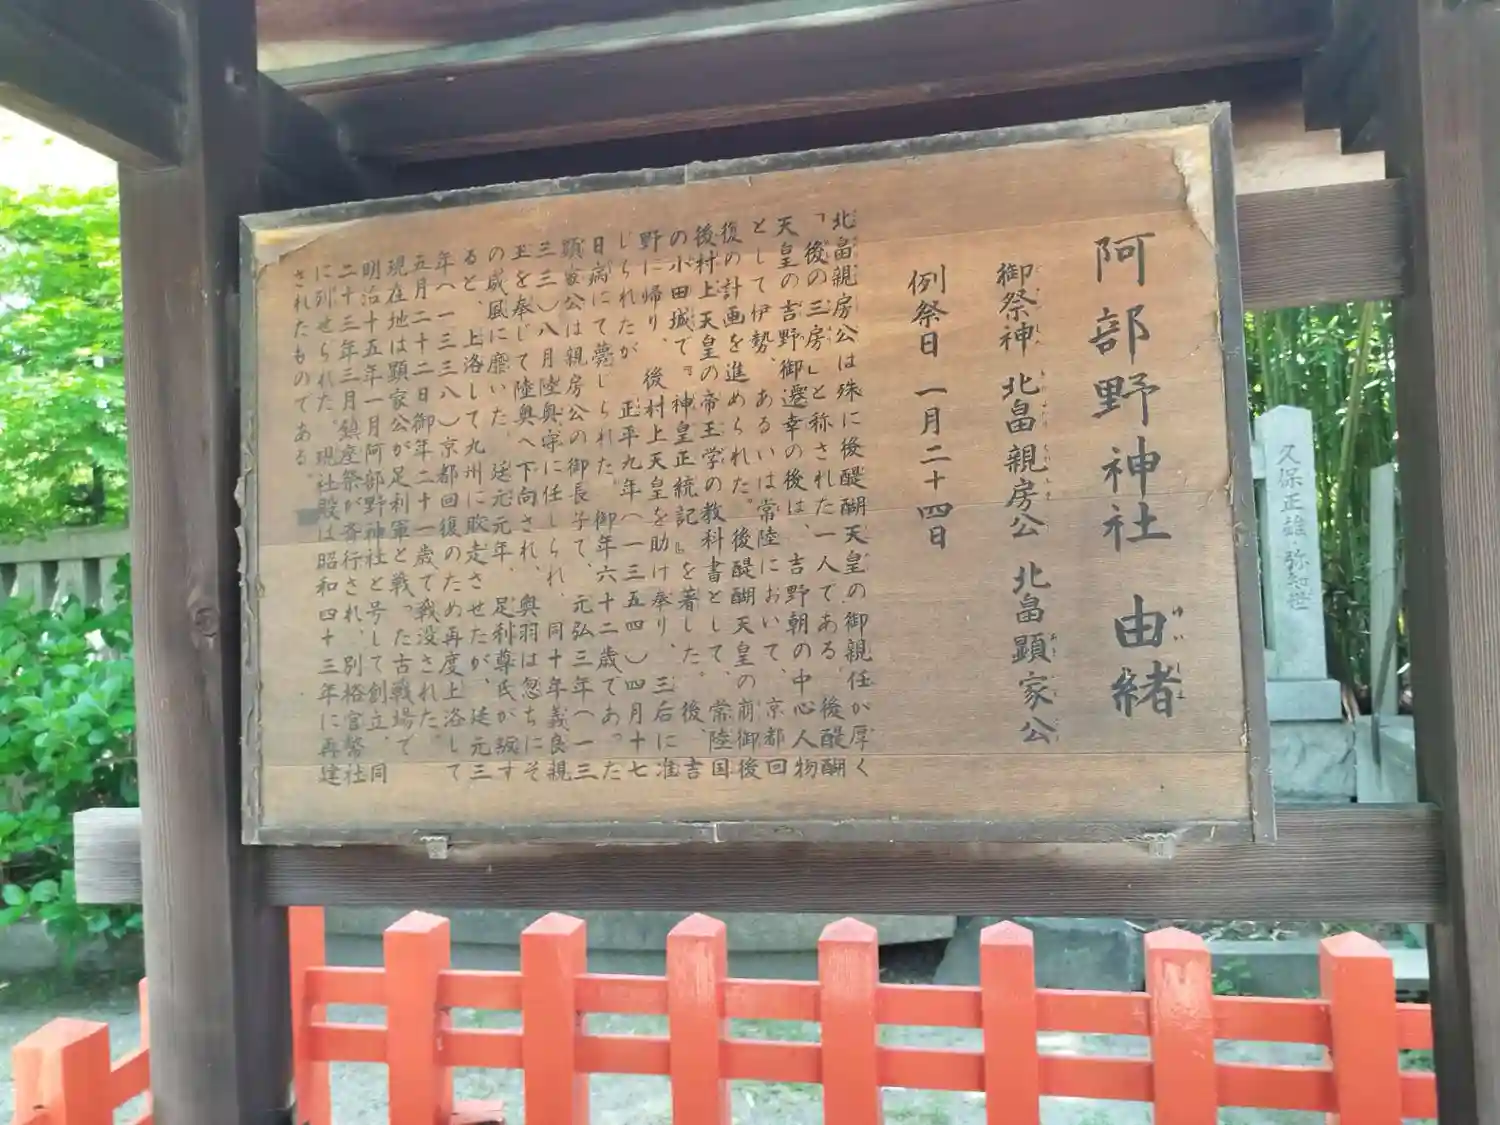 阿部野神社 由緒
けいしよ
御祭神 北畠親房公 北畠顕家公
例祭日 一月二十四日
北畠親房公は殊に後醍醐天皇の御親任が厚く
「後の三房」と称された一人である。後醍醐
天皇の吉野御遷幸の後は、吉野朝の中心人物
として伊勢、あるいは常陸において、京都回
復の計画を進められた。後醍醐天皇の前御後
後村上天皇の帝王学の教科書として、常陸国
の小田城で『神皇正統記』を著した。後、吉
野に帰り、後村上天皇を助け奉り、三后に准
じられたが 正平九年(一三五四)四月十七
日病にて薨じられた。御年六十二歳であった
顕家公は親房公の御長子で、元弘三年(一三
三三)八月陸奥守に任じられ、同十年義良親
王を奉じて陸奥へ下向され、奥羽は忽ちにそ
の威風に靡いた。延元元年、足利尊氏が叛す
ると、上洛して九州に敗走させたが、延元三
年(一三三八)京都回復のため再度上洛して
五月二十二日御年二十一歳で戦没された。
現在地は顕家公が足利軍と戦った古戦場で
明治十五年一月阿部野神社と号して創立、同
二十三年三月鎮座祭が斎行され、別格官幣社
に列せられた。現社殿は昭和四十三年に再建
されたものである。
久保正雄・弥知世